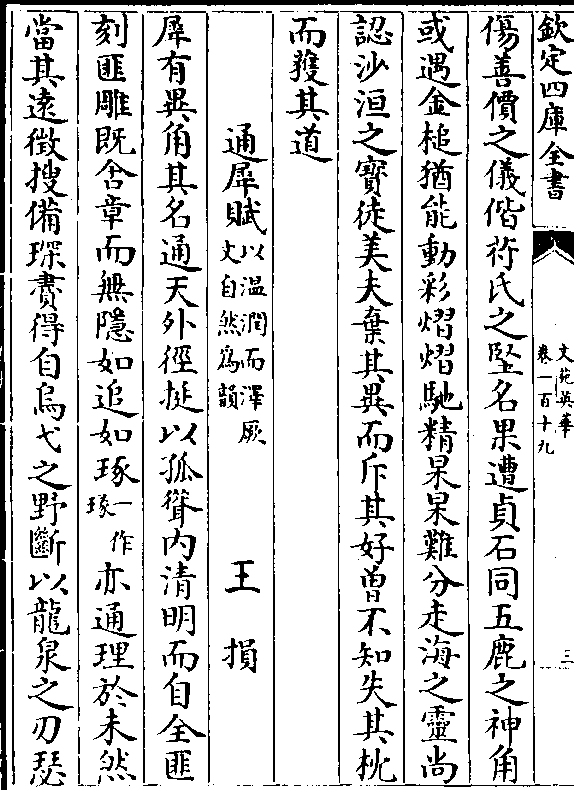 欽定四庫全書
文苑英華
卷一百十九
三
傷善價之儀偕符氏之堅名果遭貞石同五鹿之神角
或遇金槌猶能動彩熠熠馳精杲杲難分走海之靈尚
認沙洹之寳徒美夫棄其異而斥其好曽不知失其枕
而獲其道
通犀賦以温潤而澤厥文自然為韻 王損
犀有異角其名通天外徑挺以孤聳内清明而自全匪
刻匪雕既含章而無隱如追如琢一作琢亦通理於未然
當其遠徴搜備琛賮得自烏弋之野斷以龍泉之刃瑟